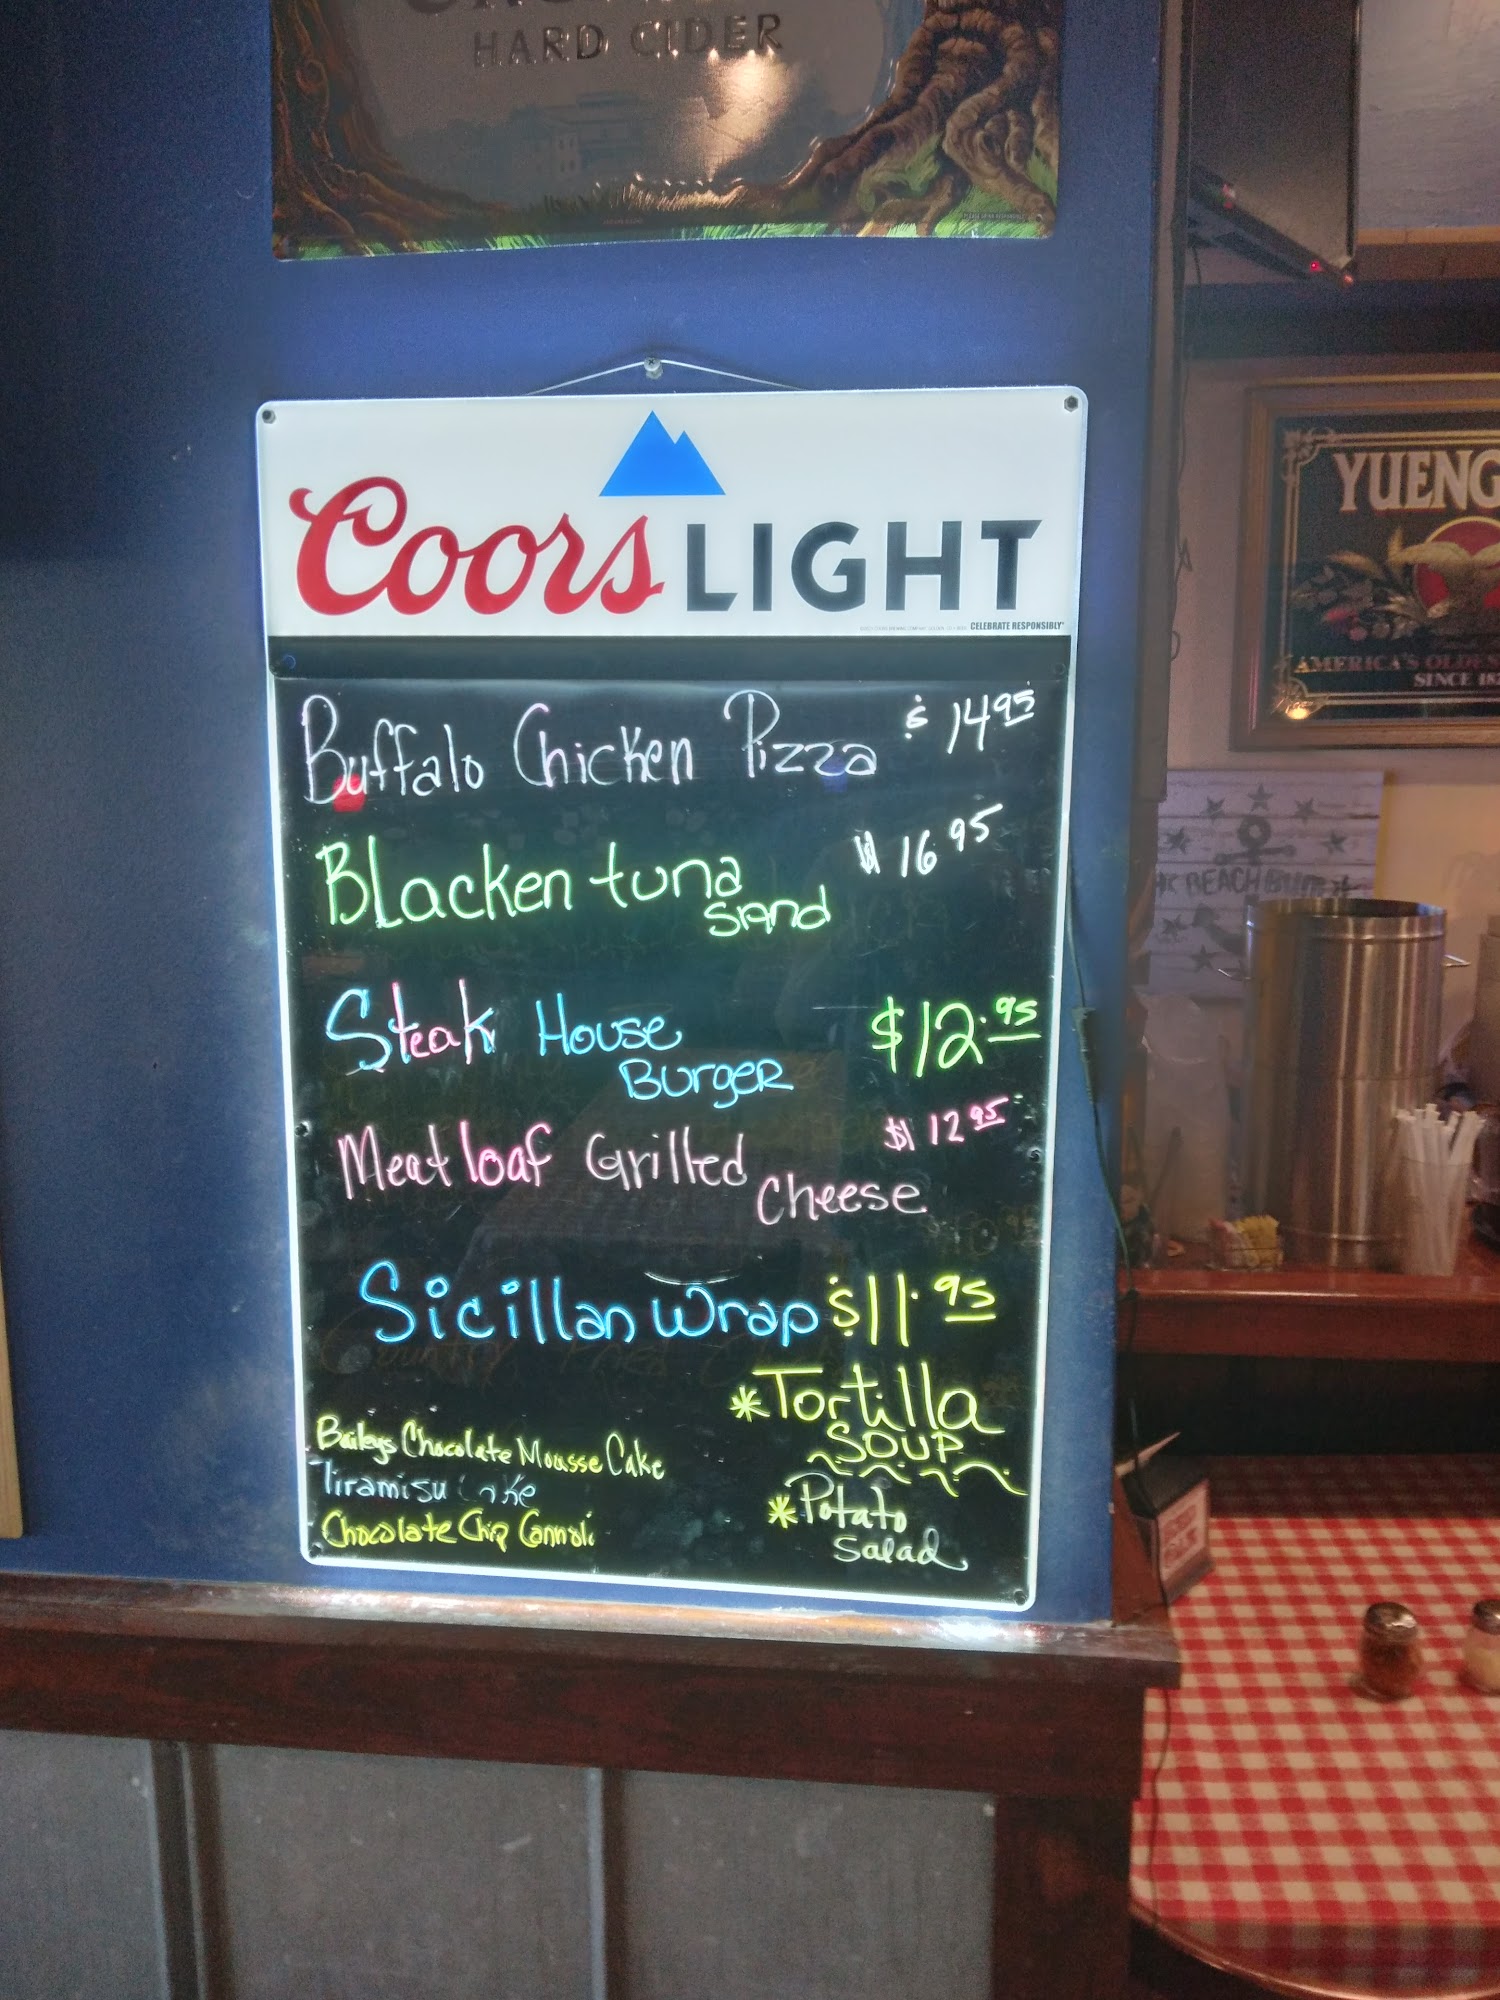 HARD CIDER
Coors LIGHT
CELEBRATE RESPONSIBLY
Buffalo Chicken Pizza $ 14 95
Blacken tuna $ 16 95
Sand
Steak House $12.95
Burger
Meat loaf Grilled $ 12 95
Cheese
Sicillan Wrap $11.95
*Tortilla
Soup
Baileys Chocolate Mousse Cake
Tiramisu
Chocolate Chip Cannoli
*Potato
Salad
YUENG
AMERICA'S OLDES
SINCE 18
BEACH